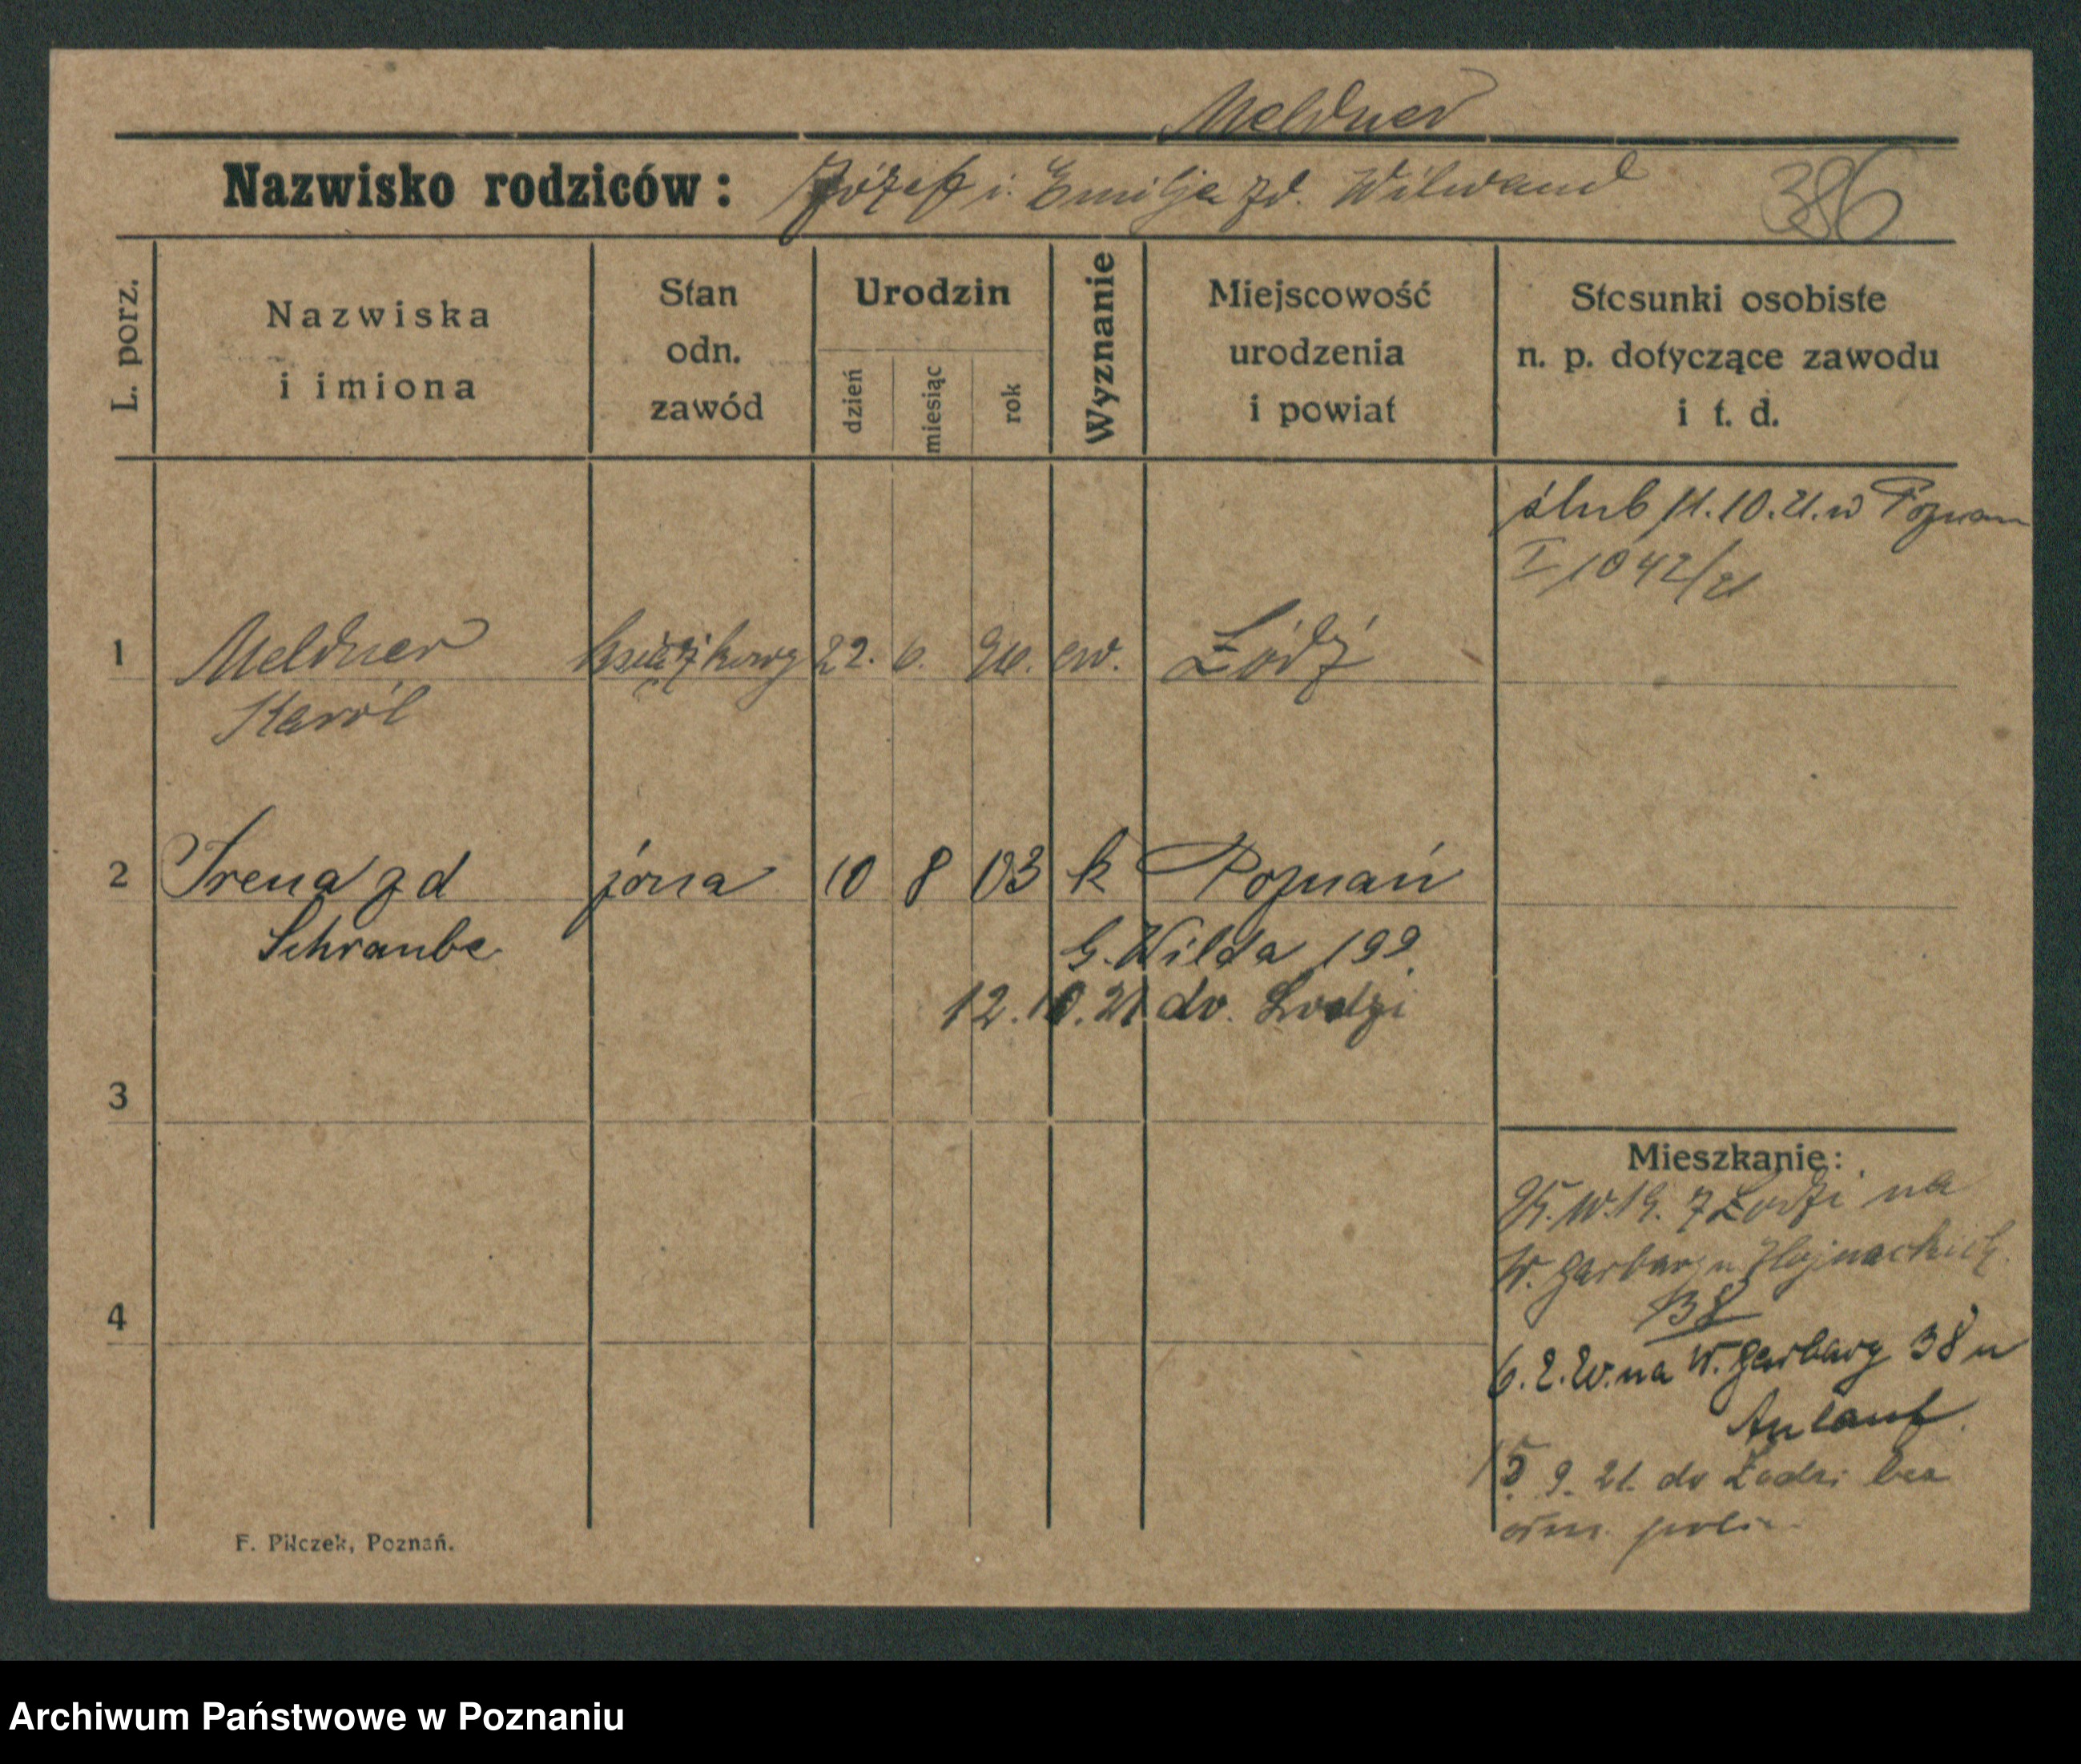 Meldner
Nazwisko rodziców: Józef i Emilja zd. Wilwand
386
L. porz.
Nazwiska
i imiona
Stan
odn.
zawód
Urodzin
dzień
miesiąc
rok
Wyznanie
Miejscowość
urodzenia
i powiat
Stosunki osobiste
n. p. dotyczące zawodu
i t. d.
ślub 11.10.21. w Poznan
I 1042/21
1 Meldner książkowy 22. 6. ew. Łódź
Karól
2 Irena zd żona 10 8 03 k Poznań
Schraube
G. Wilda 199
12.10.21 do Lodzi
3
Mieszkanie:
z Łodzi na
W. Garbary u
38
4
6. 2. na W. Garbary 38 u
Anlauf.
15. 9. 21. do Łodzi bez
F. Pilczek, Poznań.
Archiwum Państwowe w Poznaniu